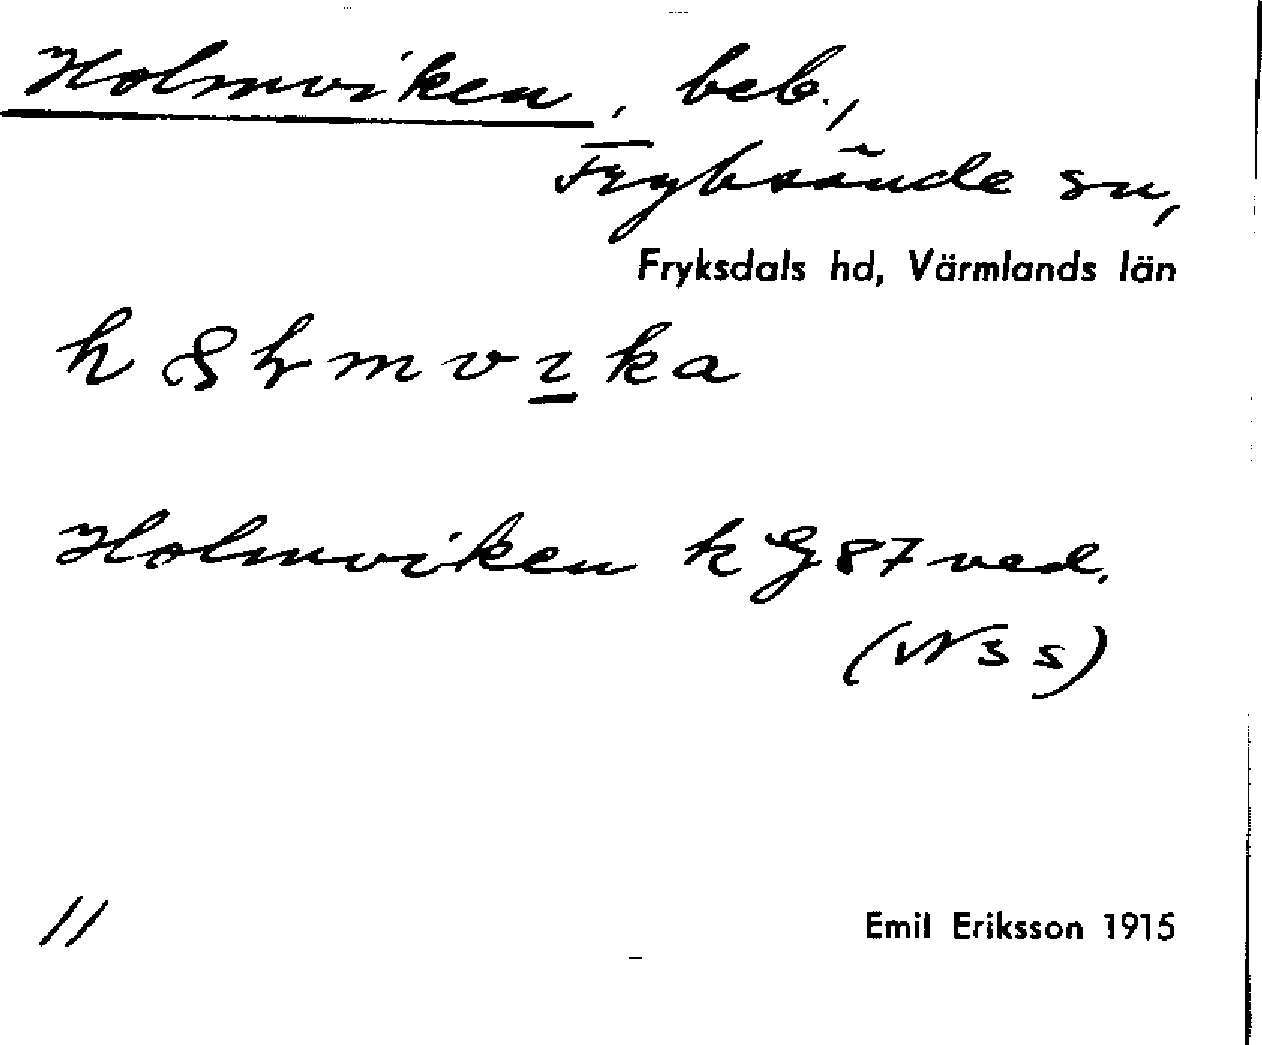 Holmviken, beb.,
Fryksände sn,
Fryksdals hd, Värmlands län
Holmviken h G87 ved.
11
Emil Eriksson 1915